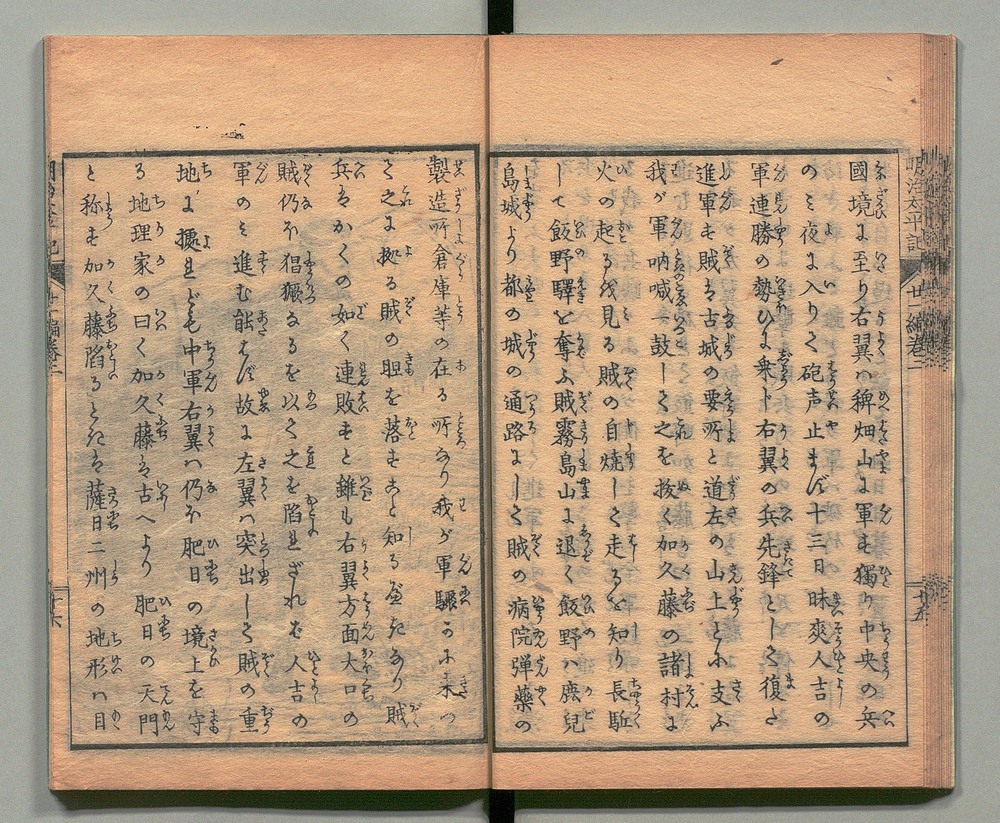 國境に至り右翼ハ稗畑山に軍も獨り中央の兵
のミ夜に入りて砲声止まず十三日昧爽人吉の
軍連勝の勢ひに乗じ右翼の兵先鋒として復た
進軍も賊は古城の要所と道左の山上とに支ふ
我が軍吶喊一鼓して之を抜く加久藤の諸村に
火の起るを見る賊の自燒して走るを知り長駈
して飯野驛を奪ふ賊霧島山に退く飯野ハ鹿児
島城より都の城の通路にして賊の病院弾藥の
製造所倉庫等の在る所なり我が軍驟かに来つ
て之に拠る賊の胆を落もこと知るべきなり賊
兵はかくの如く連敗もと雖も右翼方面大口の
賊仍ほ猖獗なるを以て之を陷れざれむ人吉の
軍のミ進む能はず故に左翼ハ突出して賊の重
地に據れども中軍右翼ハ仍ほ肥日の境上を守
る地理家の曰く加久藤は古へより肥日の天門
と称も加久藤陷るときは薩日二州の地形ハ目
明治太平記
廿一編巻二
十五
十六